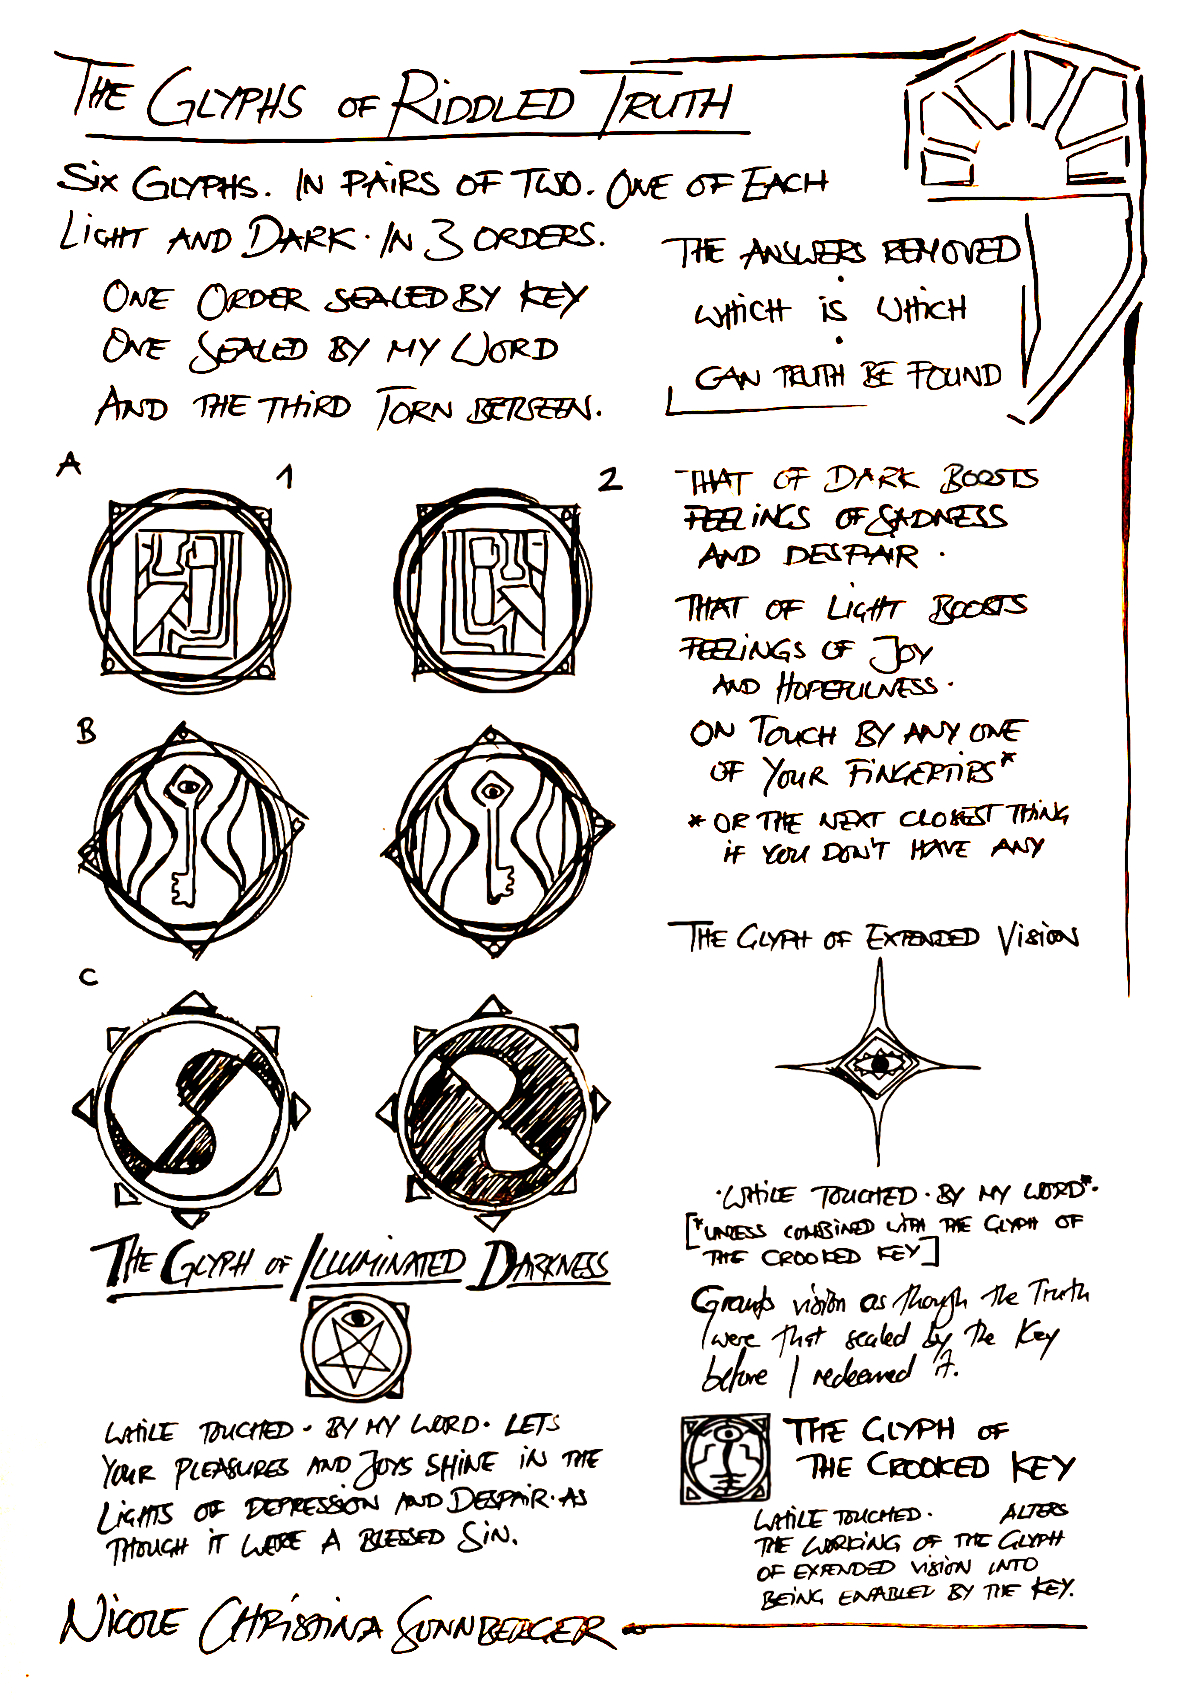 THE GLYPHS OF RIDDLED TRUTH
SIX GLYPHS. IN PAIRS OF TWO. ONE OF EACH
LIGHT AND DARK. IN 3 ORDERS.
ONE ORDER SEALED BY KEY
ONE SEALED BY MY WORD
AND THE THIRD TORN BETSEEN.
THE ANSWERS REMOVED
WHICH IS WHICH
CAN TRUTH BE FOUND
A
1
2
B
C
THAT OF DARK BOOSTS
FEELINGS OF SADNESS
AND DESPAIR.
THAT OF LIGHT BOOSTS
FEELINGS OF JOY
AND HOPEFULNESS.
ON TOUCH BY ANY ONE
OF YOUR FINGERTIPS*
* OR THE NEXT CLOSEST THING
IF YOU DON'T HAVE ANY
THE GLYPH OF EXTENDED VISION
·WHILE TOUCHED·BY MY WORD*·
[*UNLESS COMBINED WITH THE GLYPH OF
THE CROOKED KEY]
Grants vision as though the Truth
were that sealed by the Key
before I redeemed it.
THE GLYPH OF
THE CROOKED KEY
WHILE TOUCHED. ALTERS
THE WORKING OF THE GLYPH
OF EXTENDED VISION INTO
BEING ENABLED BY THE KEY.
THE GLYPH OF ILLUMINATED DARKNESS
WHILE TOUCHED · BY MY WORD · LETS
YOUR PLEASURES AND JOYS SHINE IN THE
LIGHTS OF DEPRESSION AND DESPAIR· AS
THOUGH IT WERE A BLESSED SIN.
NICOLE CHRISTINA SONNBERGER